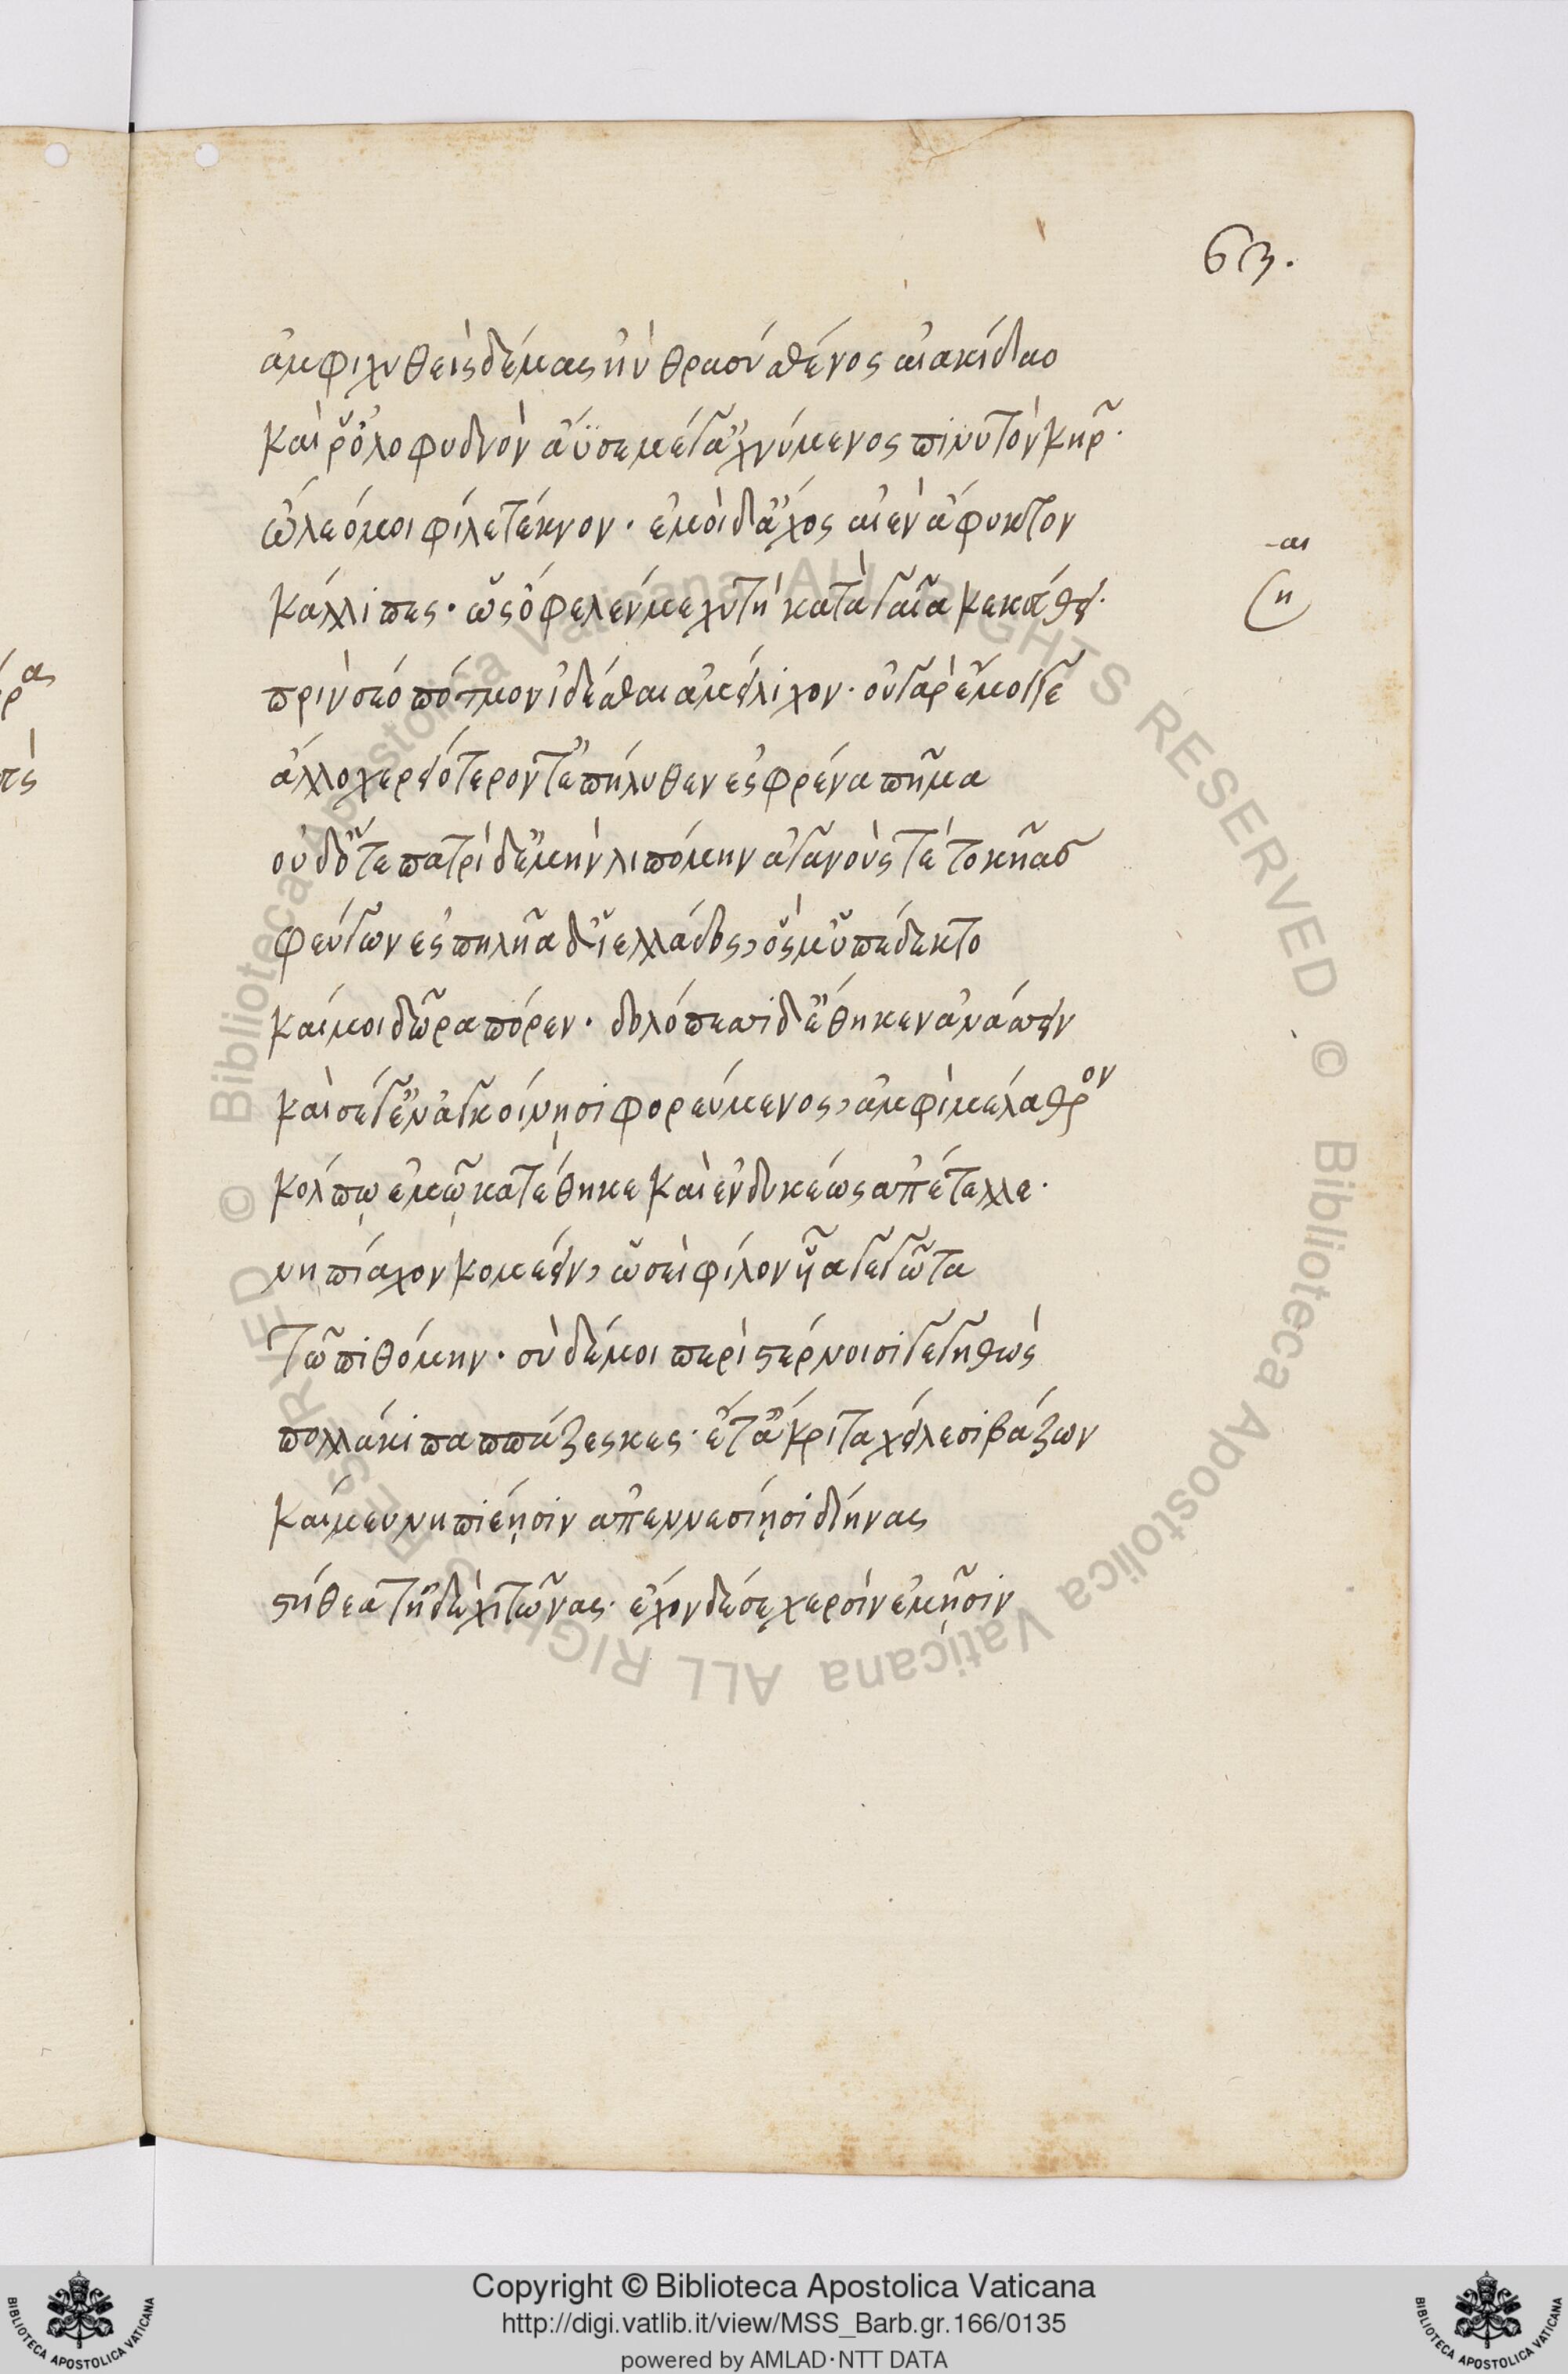 63.
ἀμφιχυθεὶς δέμας ἠὺ θρασύσθένος αἰακίδαο
καὶ ῥ' ὀλοφυδνὸν ἄϋσε μέγ' ἀχνύμενος πινυτὸν κῆρ.
ὤλεό μοι φίλε τέκνον. ἐμοὶ δ' ἄχος αἰὲν ἄφυκτον
-αι
κάλλιπες. ὡς ὄφελέν με χυτὴ κατὰ γαῖα κεκεύθει.
(η
πρὶν σέο πότμον ἰδέσθαι ἀμείλιχον. οὐ γὰρ ἔμοιγε
ἄλλο χερειότερόν τ' ἐπήλυθεν ἐς φρένα πῆμα
οὐδ' ὅτε πατρίδ' ἐμὴν λιπόμην ἀγανούς τε τοκῆας
φεύγων ἐς πηλῆα δι' ἑλλάδος, ὅς μ' ὑπέδεκτο
καί μοι δῶρα πόρεν. δολόπεσσι δ' ἔθηκεν ἀνάσσειν
καὶ σέ γ' ἐν ἀγκοίνῃσι φορεύμενος, ἀμφὶ μέλαθρον
κόλπῳ ἐμῷ κατέθηκε καὶ ἐνδυκέως ἐπέτελλε.
νηπίαχον κομέειν, ὡσεὶ φίλον υἷα γεγῶτα
τῷ πιθόμην. σὺ δέ μοι περὶ στέρνοισι γεγηθὼς
πολλάκι παππάζεσκες. ἔτ' ἄκριτα χείλεσι βάζων
καί μευ νηπιέῃσιν ἀπ' ἐννεσίῃσι δίηνας
στήθεά τ' ἠδὲ χιτῶνας. ἔχον δέ σε χερσὶν ἐμῇσιν
Copyright © Biblioteca Apostolica Vaticana
http://digi.vatlib.it/view/MSS_Barb.gr.166/0135
powered by AMLAD·NTT DATA